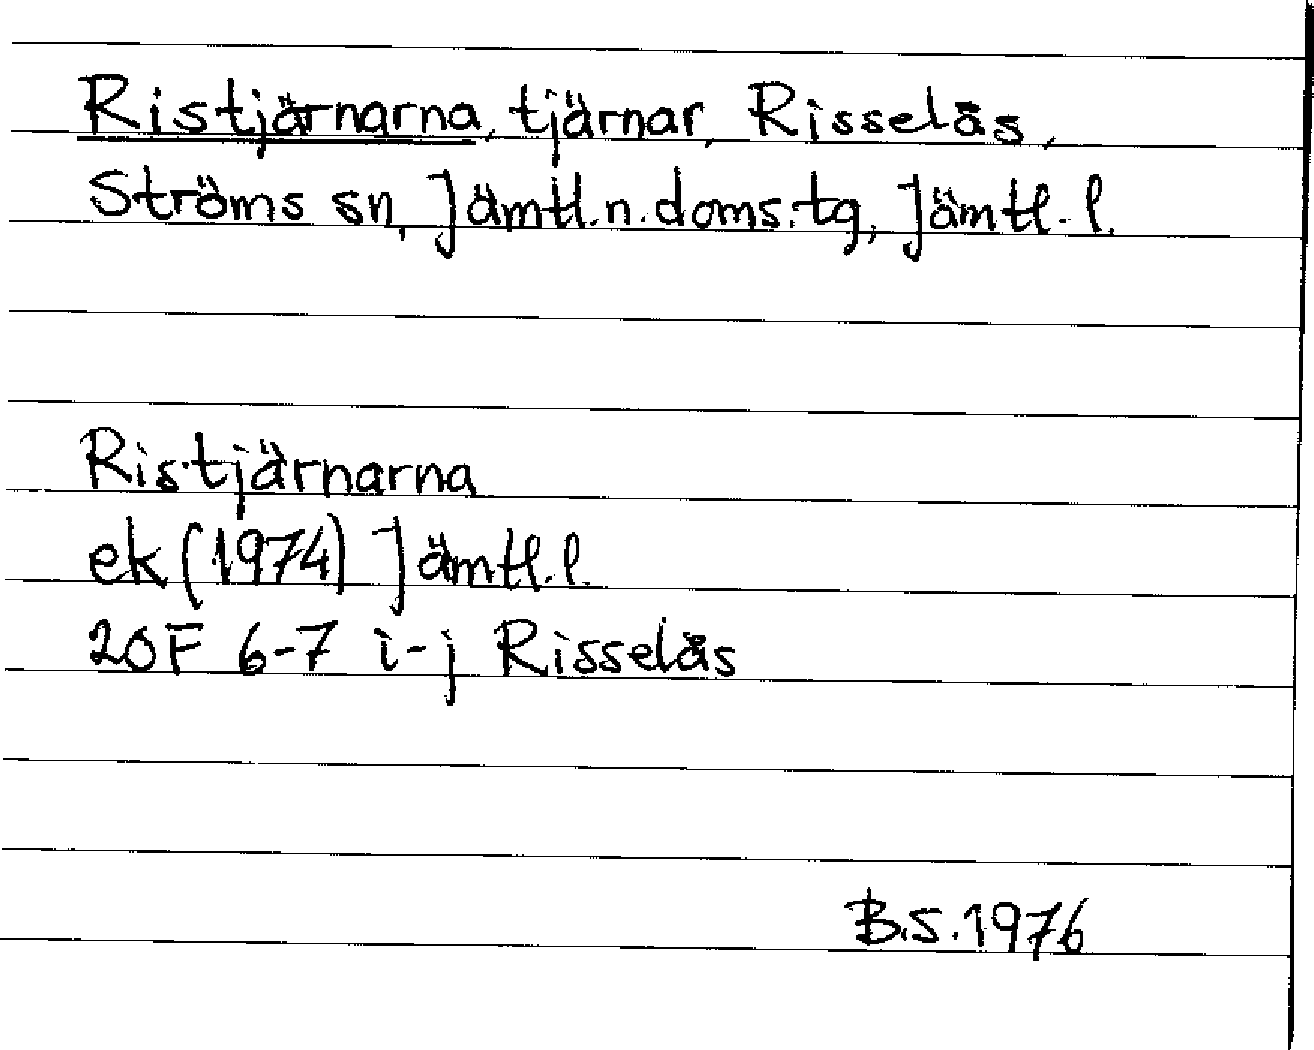 Ristjärnarna, tjärnar, Risselås,
Ströms sn, Jämtl.n.doms.tg, Jämtl.l.
Ristjärnarna
ek (1974) Jämtl.l.
20F 6-7 i-j Risselås
B.S. 1976